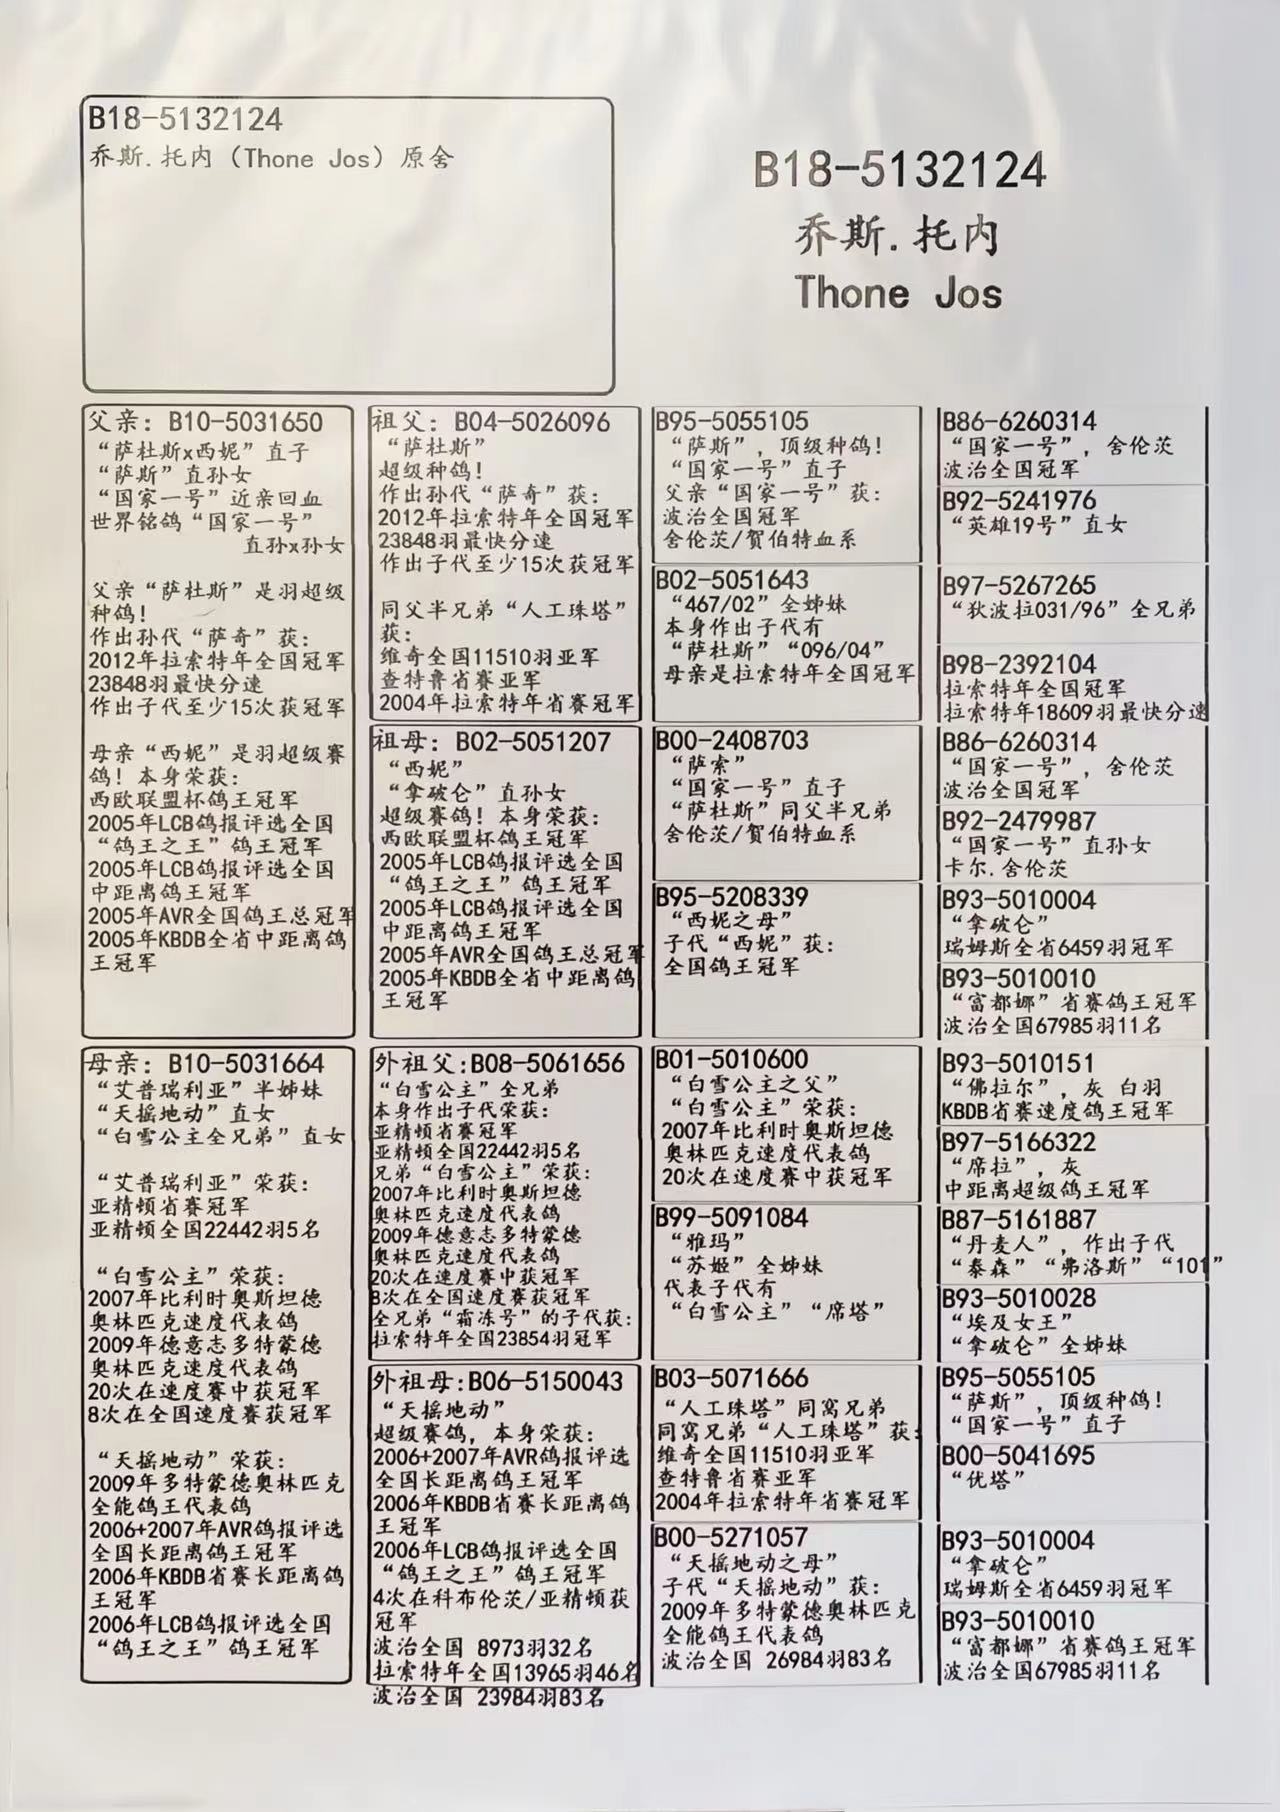 B18-5132124
乔斯.托内（Thone Jos）原舍
B18-5132124
乔斯.托内
Thone Jos
父亲: B10-5031650
“萨杜斯x西妮”直子
“萨斯”直孙女
“国家一号”近亲回血
世界铭鸽“国家一号”
直孙x孙女
父亲“萨杜斯”是羽超级
种鸽!
作出孙代“萨奇”获:
2012年拉索特年全国冠军
23848羽最快分速
作出子代至少15次获冠军
母亲“西妮”是羽超级赛
鸽! 本身荣获:
西欧联盟杯鸽王冠军
2005年LCB鸽报评选全国
“鸽王之王”鸽王冠军
2005年LCB鸽报评选全国
中距离鸽王冠军
2005年AVR全国鸽王总冠军
2005年KBDB全省中距离鸽
王冠军
祖父: B04-5026096
“萨杜斯”
超级种鸽!
作出孙代“萨奇”获:
2012年拉索特年全国冠军
23848羽最快分速
作出子代至少15次获冠军
同父半兄弟“人工珠塔”
获:
维奇全国11510羽亚军
查特鲁省赛亚军
2004年拉索特年省赛冠军
祖母: B02-5051207
“西妮”
“拿破仑”直孙女
超级赛鸽! 本身荣获:
西欧联盟杯鸽王冠军
2005年LCB鸽报评选全国
“鸽王之王”鸽王冠军
2005年LCB鸽报评选全国
中距离鸽王冠军
2005年AVR全国鸽王总冠军
2005年KBDB全省中距离鸽
王冠军
B95-5055105
“萨斯”, 顶级种鸽!
“国家一号”直子
父亲“国家一号”获:
波治全国冠军
舍伦茨/贺伯特血系
B02-5051643
“467/02”全姊妹
本身作出子代有
“萨杜斯”“096/04”
母亲是拉索特年全国冠军
B00-2408703
“萨索”
“国家一号”直子
“萨杜斯”同父半兄弟
舍伦茨/贺伯特血系
B95-5208339
“西妮之母”
子代“西妮”获:
全国鸽王冠军
B86-6260314
“国家一号”, 舍伦茨
波治全国冠军
B92-5241976
“英雄19号”直女
B97-5267265
“狄波拉031/96”全兄弟
B98-2392104
拉索特年全国冠军
拉索特年18609羽最快分速
B86-6260314
“国家一号”, 舍伦茨
波治全国冠军
B92-2479987
“国家一号”直孙女
卡尔.舍伦茨
B93-5010004
“拿破仑”
瑞姆斯全省6459羽冠军
B93-5010010
“富都娜”省赛鸽王冠军
波治全国67985羽11名
母亲: B10-5031664
“艾普瑞利亚”半姊妹
“天摇地动”直女
“白雪公主全兄弟”直女
“艾普瑞利亚”荣获:
亚精顿省赛冠军
亚精顿全国22442羽5名
“白雪公主”荣获:
2007年比利时奥斯坦德
奥林匹克速度代表鸽
2009年德意志多特蒙德
奥林匹克速度代表鸽
20次在速度赛中获冠军
8次在全国速度赛获冠军
“天摇地动”荣获:
2009年多特蒙德奥林匹克
全能鸽王代表鸽
2006+2007年AVR鸽报评选
全国长距离鸽王冠军
2006年KBDB省赛长距离鸽
王冠军
2006年LCB鸽报评选全国
“鸽王之王”鸽王冠军
外祖父:B08-5061656
“白雪公主”全兄弟
本身作出子代荣获:
亚精顿省赛冠军
亚精顿全国22442羽5名
兄弟“白雪公主”荣获:
2007年比利时奥斯坦德
奥林匹克速度代表鸽
2009年德意志多特蒙德
奥林匹克速度代表鸽
20次在速度赛中获冠军
8次在全国速度赛获冠军
全兄弟“霜冻号”的子代获:
拉索特年全国23854羽冠军
外祖母:B06-5150043
“天摇地动”
超级赛鸽, 本身荣获:
2006+2007年AVR鸽报评选
全国长距离鸽王冠军
2006年KBDB省赛长距离鸽
王冠军
2006年LCB鸽报评选全国
“鸽王之王”鸽王冠军
4次在科布伦茨/亚精顿获
冠军
波治全国 8973羽32名
拉索特年全国13965羽46名
波治全国 23984羽83名
B01-5010600
“白雪公主之父”
“白雪公主”荣获:
2007年比利时奥斯坦德
奥林匹克速度代表鸽
20次在速度赛中获冠军
B99-5091084
“雅玛”
“苏姬”全姊妹
代表子代有
“白雪公主”“席塔”
B03-5071666
“人工珠塔”同窝兄弟
同窝兄弟“人工珠塔”获:
维奇全国11510羽亚军
查特鲁省赛亚军
2004年拉索特年省赛冠军
B00-5271057
“天摇地动之母”
子代“天摇地动”获:
2009年多特蒙德奥林匹克
全能鸽王代表鸽
波治全国 26984羽83名
B93-5010151
“佛拉尔”, 灰 白羽
KBDB省赛速度鸽王冠军
B97-5166322
“席拉”, 灰
中距离超级鸽王冠军
B87-5161887
“丹麦人”, 作出子代
“泰森”“弗洛斯”“101”
B93-5010028
“埃及女王”
“拿破仑”全姊妹
B95-5055105
“萨斯”, 顶级种鸽!
“国家一号”直子
B00-5041695
“优塔”
B93-5010004
“拿破仑”
瑞姆斯全省6459羽冠军
B93-5010010
“富都娜”省赛鸽王冠军
波治全国67985羽11名